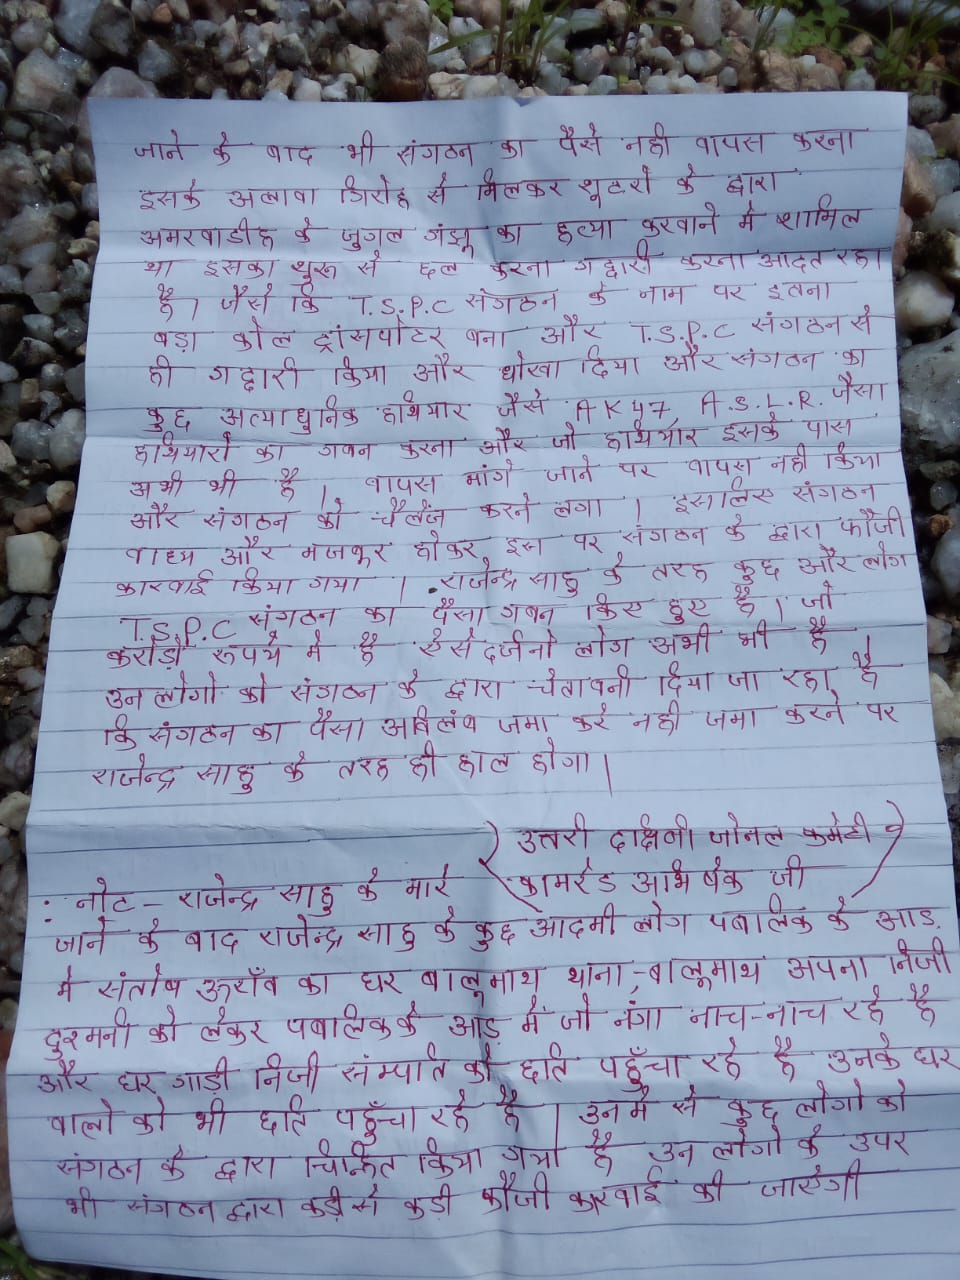 जाने के बाद भी संगठन का पैसे नही वापस करना
इसके अलावा गिरोह से मिलकर शूटरो के द्वारा
अमरवाडीह के जुगल गंझू का हत्या करवाने मे शामिल
था इसका शुरू से छल करना गद्दारी करना आदत रहा
है। जैसे कि T.S.P.C संगठन के नाम पर इतना
बड़ा कोल ट्रांसपोटर बना और T.S.P.C संगठन से
ही गद्दारी किया और धोखा दिया और संगठन का
कुछ अत्याधुनिक हथियार जैसे AK47, A.S.L.R. जैसा
हथियारो का गबन करना और जो हथियार इसके पास
अभी भी है। वापस मांगे जाने पर वापस नही किया
और संगठन को चैलेंज करने लगा। इसलिए संगठन
वाध्य और मजबूर होकर इस पर संगठन के द्वारा फौजी
कारवाई किया गया। राजेन्द्र साहु के तरह कुछ और लोग
T.S.P.C संगठन का पैसा गबन किए हुए है। जो
करोड़ो रूपये मे है ऐसे दर्जनो लोग अभी भी है।
उन लोगो को संगठन के द्वारा चेतावनी दिया जा रहा है
कि संगठन का पैसा अविलंब जमा करे नही जमा करने पर
राजेन्द्र साहु के तरह ही हाल होगा।
उत्तरी दक्षिणी जोनल कमेटी
कामरेड अभिषेक जी
: नोट - राजेन्द्र साहु के मारे
जाने के बाद राजेन्द्र साहु के कुछ आदमी लोग पबालिक के आड़
मे संतोष ऊराँव का घर बालूमाथ थाना, बालूमाथ अपना निजी
दुश्मनी को लेकर पबालिक के आड़ में जो नंगा नाच-नाच रहे है
और घर गाड़ी निजी संम्पति को छति पहुँचा रहे है उनके घर
वालो को भी छति पहुँचा रहे है। उनमे से कुछ लोगो को
संगठन के द्वारा चिन्हित किया गया है उन लोगो के उपर
भी संगठन द्वारा कड़ी से कड़ी फौजी कारवाई की जाएगी